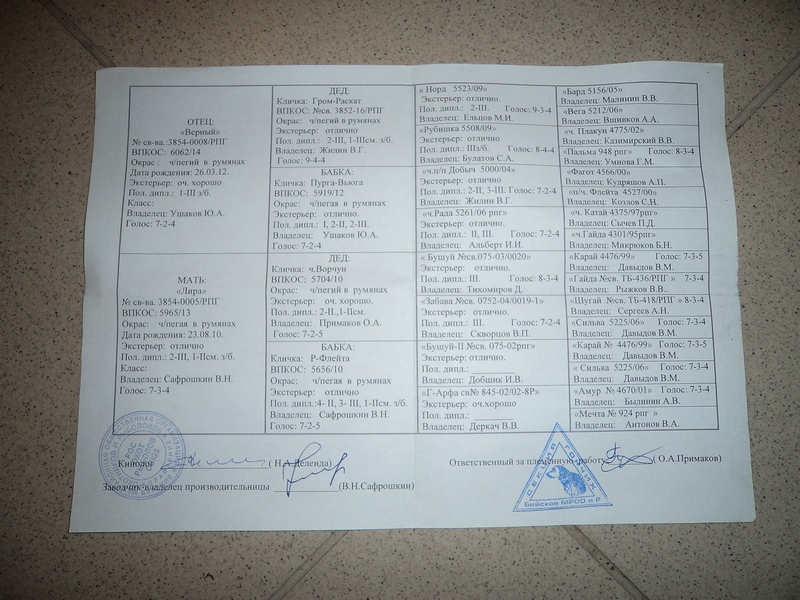 ОТЕЦ:
«Верный»
№ св-ва.:3854-0008/РПГ
ВПКОС: 6062/14
Окрас : ч/пегий в румянах
Дата рождения: 26.03.12.
Экстерьер: оч. хорошо
Пол. дипл.: 1-III з/б.
Класс:
Владелец: Ушаков Ю.А.
Голос: 7-2-4
МАТЬ:
«Лира»
№ св-ва. 3854-0005/РПГ
ВПКОС: 5965/13
Окрас: ч/пегая в румянах
Дата рождения: 23.08.10.
Экстерьер: отлично
Пол. дипл.: 2-III, 1-IIсм. з/б.
Класс:
Владелец: Сафрошкин В.Н.
Голос: 7-3-4
ДЕД:
Кличка: Гром-Раскат
ВПКОС: №св. 3852-16/РПГ
Окрас: ч/пегий в румянах
Экстерьер: отлично
Пол. дипл.: 2-III, 1-IIсм з/б.
Владелец: Жилин В.Г.
Голос: 9-4-4
БАБКА:
Кличка: Пурга-Вьюга
ВПКОС: 5919/12
Окрас: ч/пегая в румянах
Экстерьер: отлично.
Пол. дипл.: I, 2-II, 2-III.
Владелец: Ушаков Ю.А.
Голос: 7-2-4
ДЕД:
Кличка: ч.Ворчун
ВПКОС: 5704/10
Окрас: ч/пегий в румянах
Экстерьер: оч. хорошо.
Пол. дипл.: 2-II.,1-IIсм.
Владелец: Примаков О.А.
Голос: 7-2-5
БАБКА:
Кличка: Р-Флейта
ВПКОС: 5656/10
Окрас: ч/пегая в румянах
Экстерьер: отлично
Пол. дипл.:4- II, 3- III, 1-IIсм. з/б.
Владелец: Сафрошкин В.Н.
Голос: 7-2-5
« Норд 5523/09»
Экстерьер: отлично.
Пол. дипл.: 2-III. Голос: 9-3-4
Владелец: Ельцов М.И.
«Рубишка 5508/09»
Экстерьер: отлично.
Пол. дипл.: IIз/б Голос: 8-4-4
Владелец: Булатов С.А.
«ч.п/п Добыч 5000/04»
Экстерьер: отлично
Пол. дипл.: 2-II, 3-III. Голос: 7-2-4
Владелец: Жилин В.Г.
«ч.Рада 5261/06 рпг»
Экстерьер: отлично.
Пол. дипл.: II, III. Голос: 7-2-4
Владелец: Альберт И.И.
« Бушуй №св.075-03/0020»
Экстерьер: отлично.
Пол. дипл.: III. Голос: 8-3-4
Владелец: Тихомиров Д.
«Забава №св. 0752-04/0019-1»
Экстерьер: отлично.
Пол. дипл.: III. Голос: 7-2-4
Владелец: Скворцов В.П.
«Бушуй-II №св. 075-02рпг»
Экстерьер: отлично.
Пол. дипл.:
Владелец: Добшик И.В.
«Г-Арфа св№ 845-02/02-8Р»
Экстерьер: оч.хорошо
Пол. дипл.:
Владелец: Деркач В.В.
«Бард 5156/05»
Владелец: Малинин В.В.
«Вега 5212/06»
Владелец: Вшивков А.А.
«ч. Плакун 4775/02»
Владелец: Казимирский В.В.
«Пальма 948 рпг» Голос: 8-3-4
Владелец: Умнова Г.М.
«Фагот 4566/00»
Владелец: Кудряшов А.П.
«п/ч. Флейта 4527/00»
Владелец: Козлов С.Н.
«ч. Катай 4375/97рпг»
Владелец: Сычев П.Д.
«ч.Гайда 4301/95рпг»
Владелец: Микрюков Б.Н.
«Карай 4476/99» Голос: 7-3-5
Владелец: Давыдов В.М.
«Гайда №св. ТБ-436/РПГ » 7-3-4
Владелец: Рыжков В.В..
«Шугай №св. ТБ-418/РПГ » 8-3-4
Владелец: Сергеев А.Н.
«Сильва 5225/06» Голос: 7-3-4
Владелец: Давыдов В.М.
«Карай № 4476/99» Голос: 7-3-5
Владелец: Давыдов В.М.
« Сильва 5225/06» Голос: 7-3-4
Владелец: Давыдов В.М.
«Амур № 4670/01» Голос: 7-3-4
Владелец: Былинин А.В.
«Мечта № 924 рпг »
Владелец: Антонов В.А.
Кинолог ( Н.А.Деленда)
Ответственный за племенную работу ( О.А.Примаков)
Заводчик-владелец производительницы (В.Н.Сафрошкин)
СЕКЦИЯ ГОНЧИХ
Бийское МРОО и Р